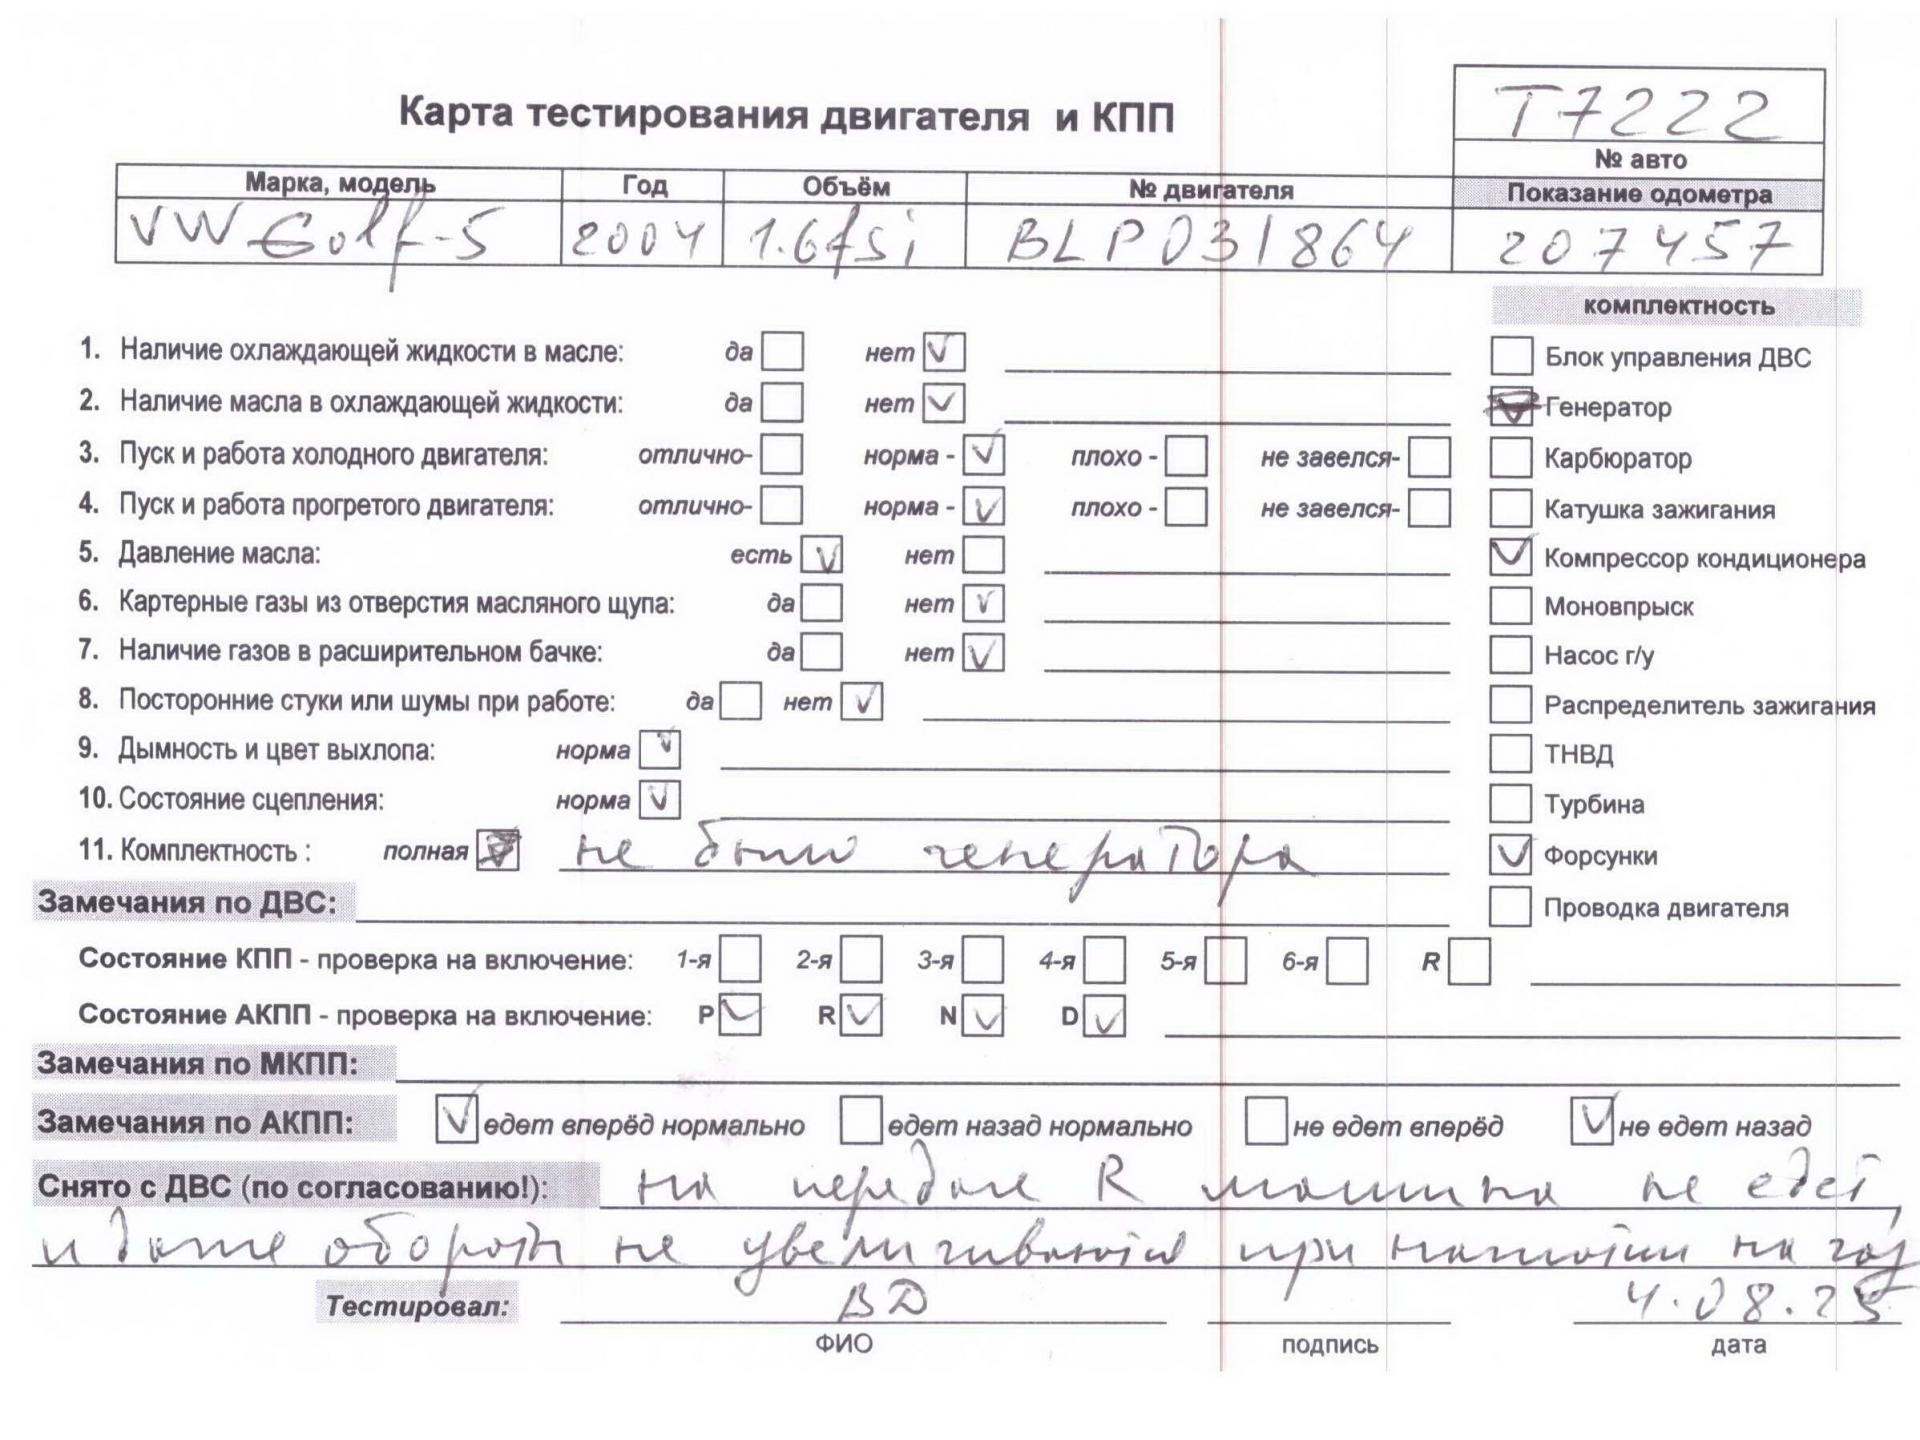 Карта тестирования двигателя и КПП
T7222
№ авто
Марка, модель Год Объём № двигателя Показание одометра
VW Golf-5 2004 1.6fsi BLP031864 207457
комплектность
1. Наличие охлаждающей жидкости в масле: да нет Блок управления ДВС
2. Наличие масла в охлаждающей жидкости: да нет Генератор
3. Пуск и работа холодного двигателя: отлично- норма - плохо - не завелся- Карбюратор
4. Пуск и работа прогретого двигателя: отлично- норма - плохо - не завелся- Катушка зажигания
5. Давление масла: есть нет Компрессор кондиционера
6. Картерные газы из отверстия масляного щупа: да нет Моновпрыск
7. Наличие газов в расширительном бачке: да нет Насос г/у
8. Посторонние стуки или шумы при работе: да нет Распределитель зажигания
9. Дымность и цвет выхлопа: норма ТНВД
10. Состояние сцепления: норма Турбина
11. Комплектность : полная не было генератора Форсунки
Замечания по ДВС: Проводка двигателя
Состояние КПП - проверка на включение: 1-я 2-я 3-я 4-я 5-я 6-я R
Состояние АКПП - проверка на включение: P R N D
Замечания по МКПП:
Замечания по АКПП: едет вперёд нормально едет назад нормально не едет вперёд не едет назад
Снято с ДВС (по согласованию!): на передаче R машина не едет,
и даже обороты не увеличиваются при нажатии на газ
Тестировал: ВД 4.08.25
ФИО подпись дата